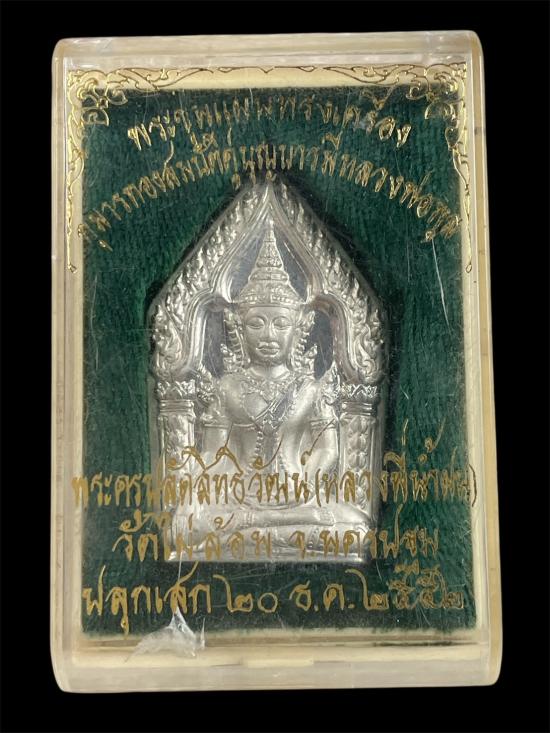 พระขุนแผนทรงเครื่อง
กุมารทองสมบัติคู่บุญบารมีหลวงพ่อพูล
พระครูปลัดสิทธิวัฒน์(หลวงพี่น้ำฝน)
วัดไผ่ล้อม จ.นครปฐม
ปลุกเสก ๒๐ ธ.ค.๒๕๕๒